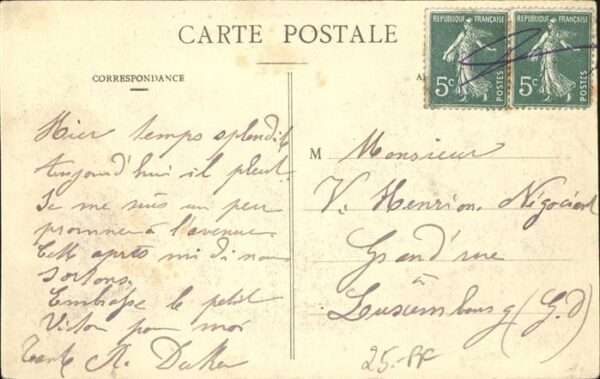 CARTE POSTALE
REPUBLIQUE FRANÇAISE
5c
POSTES
REPUBLIQUE FRANÇAISE
5c
POSTES
CORRESPONDANCE
Hier temps splendide
Aujourd'hui il pleut.
Je me suis un peu
promener à l'avenue
Cette après midi nous
sortons.
Embrasse le petit
pour moi
M Monsieur
V. Henrion, Négociant
Grand'rue
à
Luxembourg (G.D)
25.-